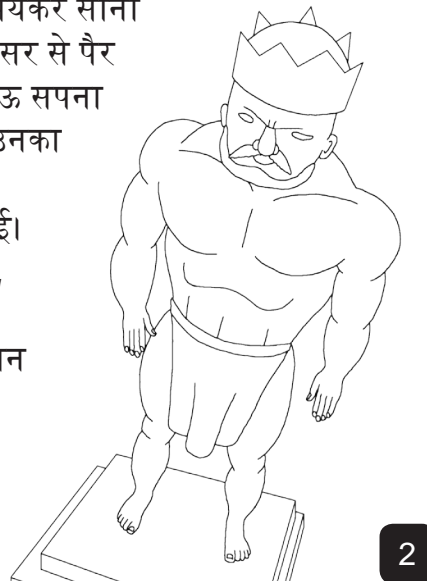 यकर सोना
सर से पैर
ऊ सपना
उनका
ई।
न
2